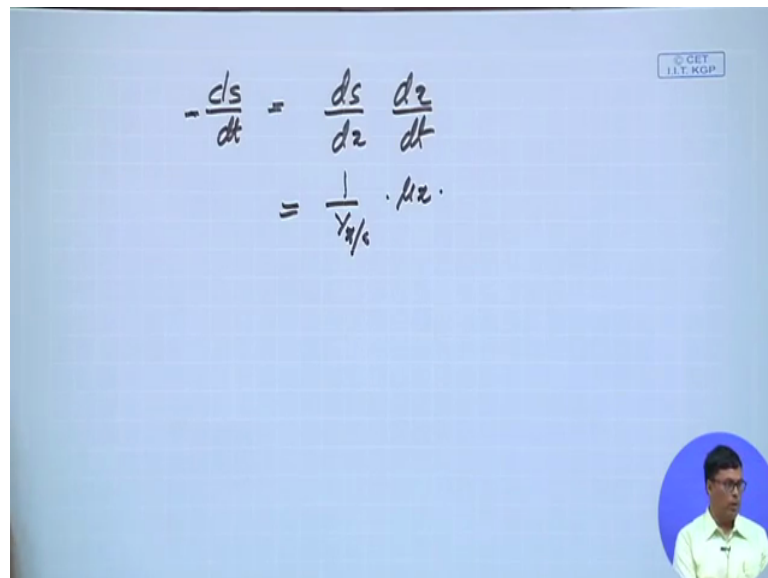 © CET
I.I.T. KGP
- ds/dt = ds/dx dx/dt
= 1/Y_x/s · μx ·